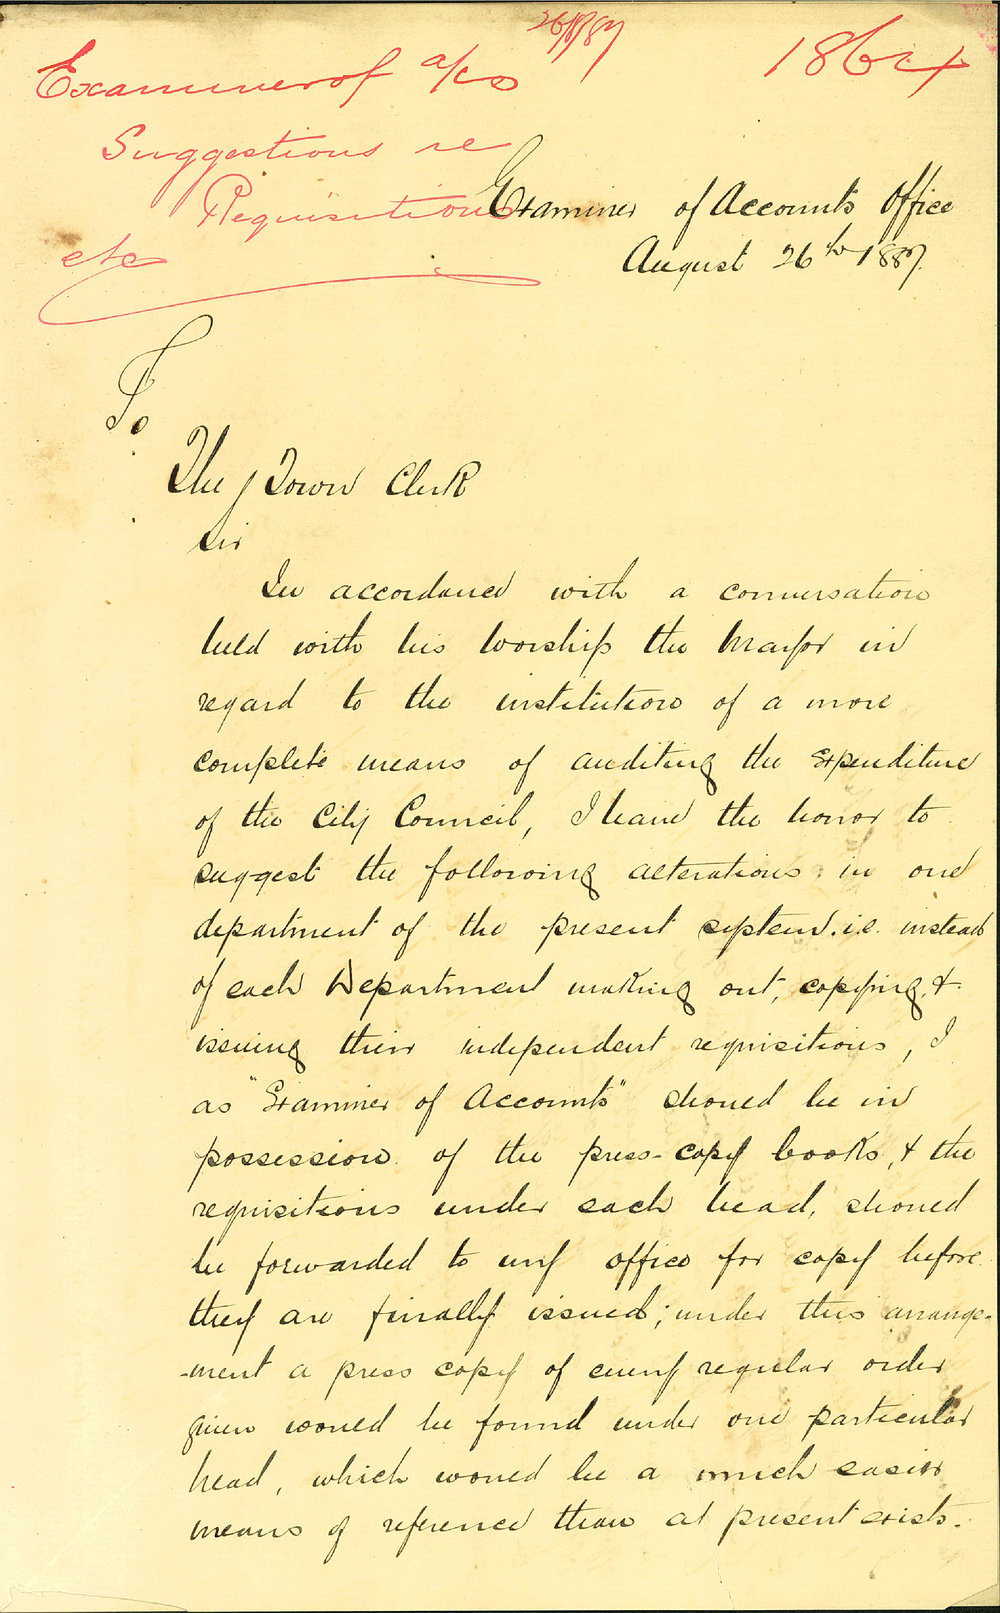 26/8/87
1864
Examiner of a/cs
Suggestions re
Requisitions
etc
Examiner of Accounts Office
August 26th 1887.
To
The Town Clerk
Sir
In accordance with a conversation
held with his Worship the Mayor in
regard to the institution of a more
complete means of auditing the Expenditure
of the City Council, I have the honor to
suggest the following alterations in one
department of the present system. i.e. instead
of each Department making out, copying, &
issuing their independent requisitions, I
as "Examiner of Accounts" should be in
possession of the press-copy books, & the
requisitions under each head, should
be forwarded to my office for copy before
they are finally issued; under this arrange-
-ment a press copy of every regular order
given would be found under one particular
head, which would be a much easier
means of reference than at present exists.